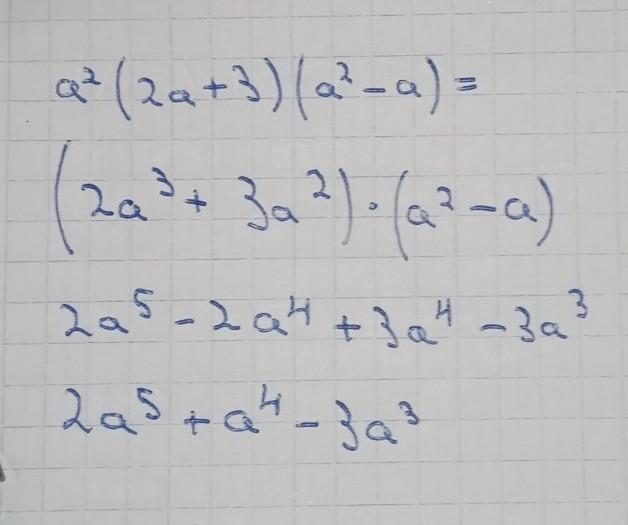 a²(2a+3)(a²-a)=
(2a³+3a²)·(a²-a)
2a⁵-2a⁴+3a⁴-3a³
2a⁵+a⁴-3a³